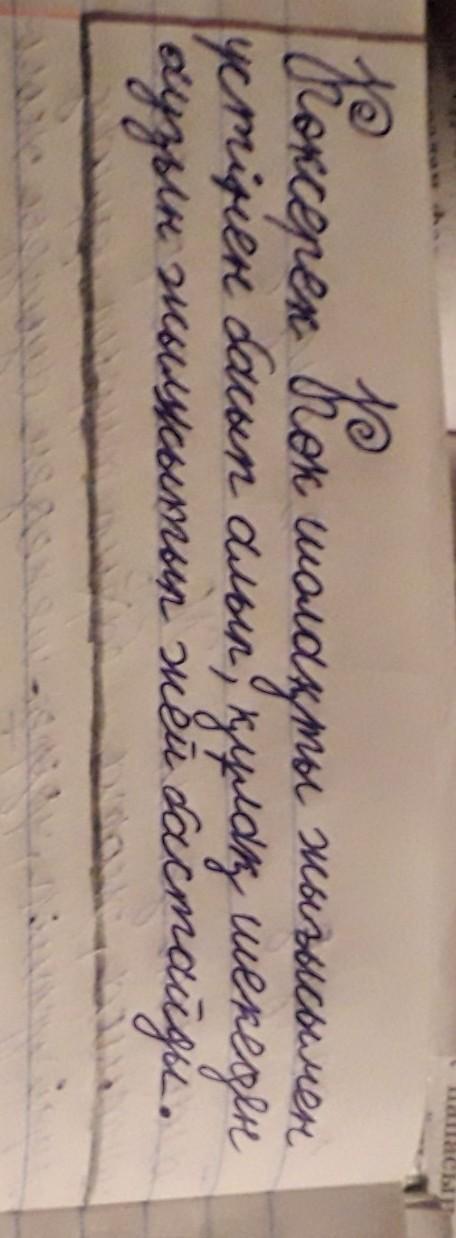 Көксерек Көк шолақты жығысымен
үстінен басып алып, құлақ шекеден
аузын жылжытып жей бастайды.